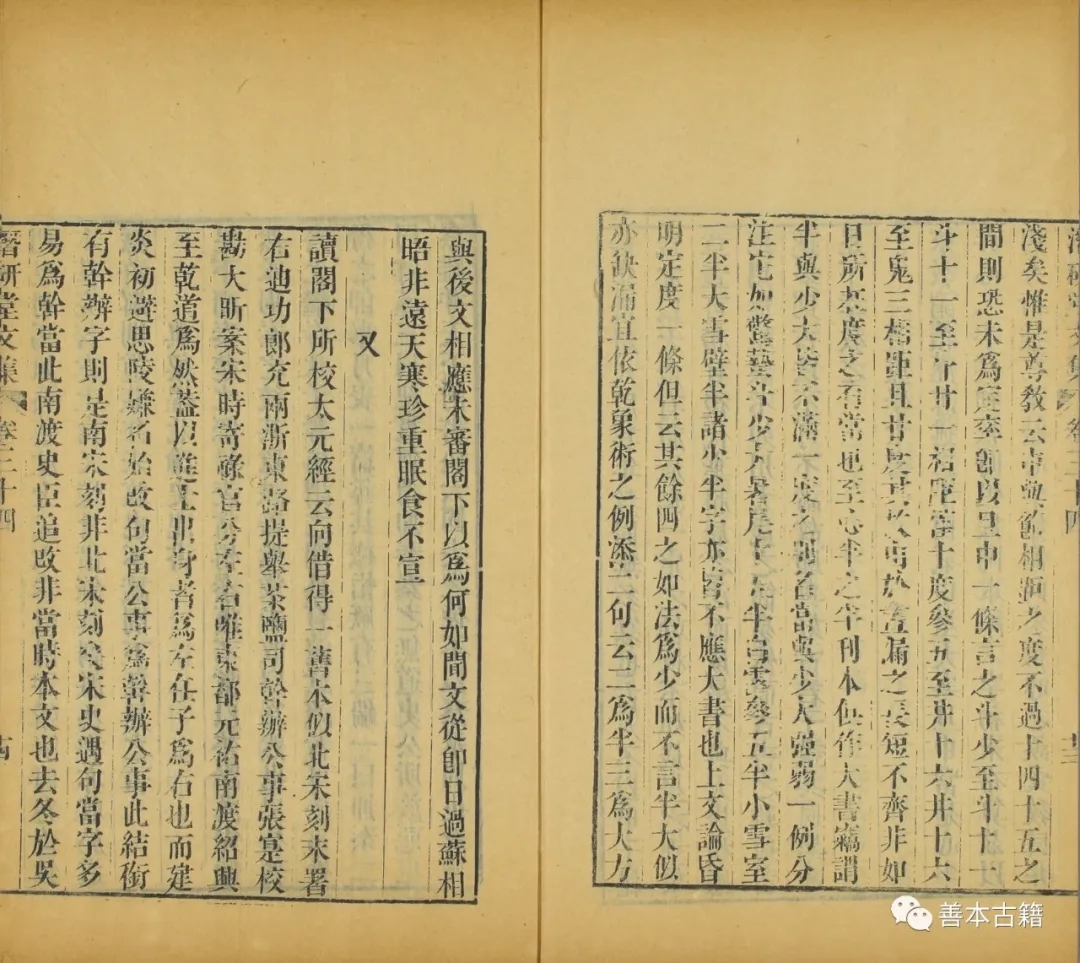 淺矣惟是尊教云中與節相距之度不過十四十五之
間則恐未為定率即以旦中一條言之斗少至斗十一
斗十一至斗廿一相距皆十度參五至井十六井十六
至鬼三相距且廿度其故由於宵漏之長短不齊非如
日所在度之有常也至心半之半刊本俱作大書竊謂
半與少大皆不滿一度之別名當與少大強弱一例分
注它如驚蟄斗少大暑尾十五半白露參五半小雪室
二半大雪壁半諸少半字亦皆不應大書也上文論昏
明定度一條但云其餘四之如法為少而不言半大似
亦缺漏宜依乾象術之例添二句云二為半三為大方
與後文相應未審閣下以為何如間文從即日過蘇相
昭非遠天寒珍重眠食不宣
又
讀閣下所校太元經云向借得一舊本似北宋刻末署
右迪功郎充兩浙東路提舉茶鹽司幹辦公事張寔校
勘大昕案宋時寄祿官分左右唯東都元祐南渡紹興
至乾道為然葢以進士出身者為左任子為右也而建
炎初避思陵嫌名始改句當公事為幹辦公事此結銜
有幹辦字則是南宋刻非北宋刻矣宋史遇句當字多
易為幹當此南渡史臣追改非當時本文也去冬於吳
潛研堂文集 卷三十四
善本古籍